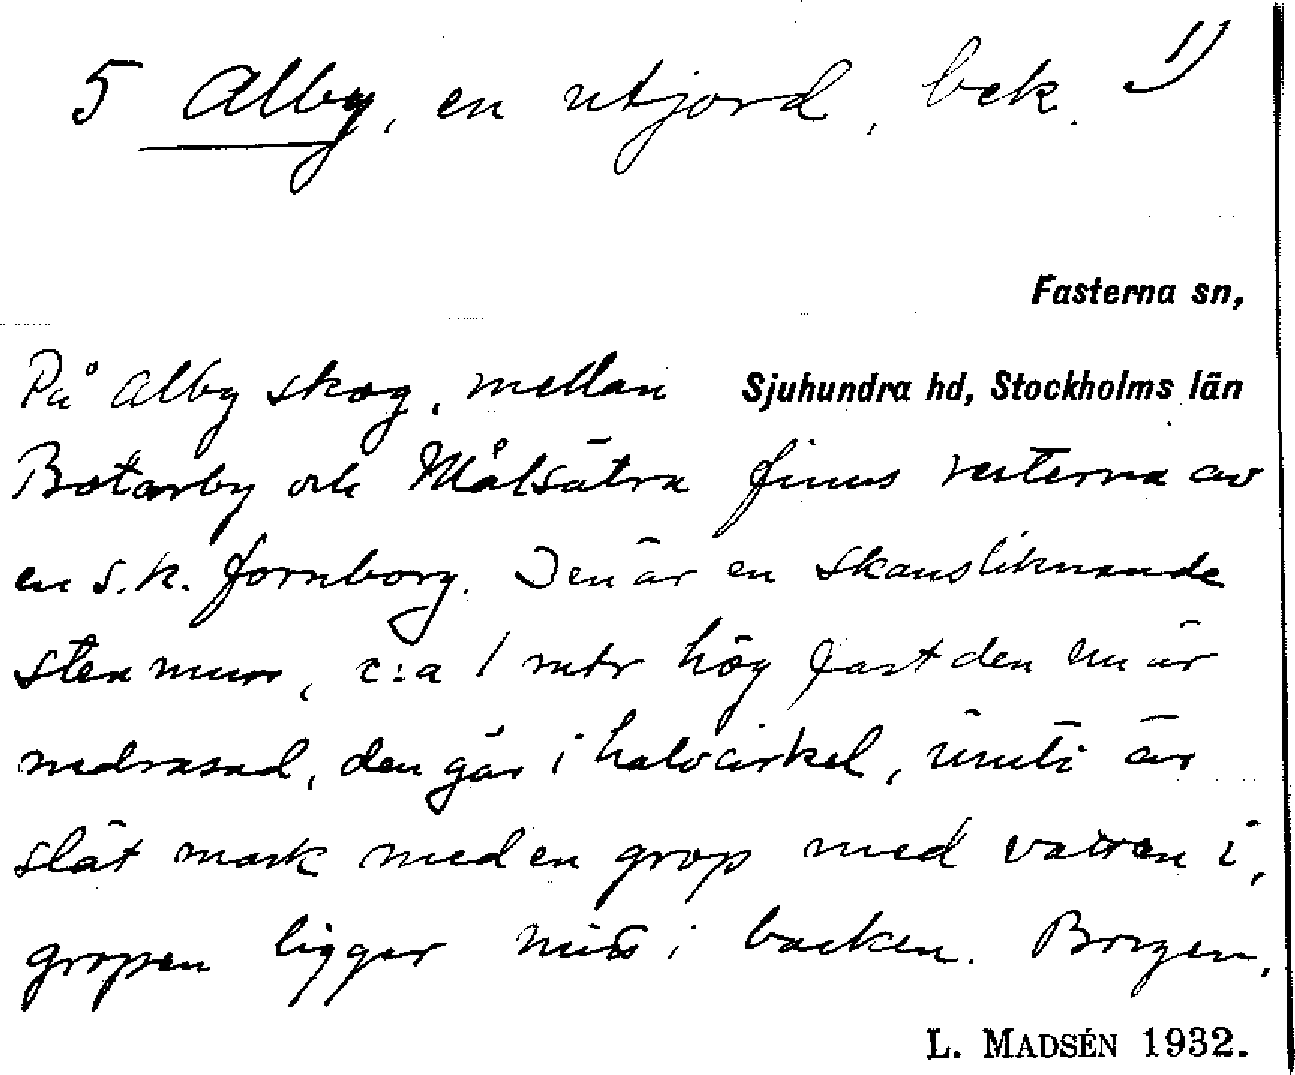 5 Alby, en utjord, bek. 1)
Fasterna sn,
På Alby skog, mellan Sjuhundra hd, Stockholms län
Botarby och Målsätra finns resterna av
en s.k. fornborg. Den är en skansliknande
stenmur, c:a 1 mtr hög fast den nu är
nedrasad, den går i halvcirkel, inuti är
slät mark med en grop med vatten i,
gropen ligger mitt i backen. Borgen,
L. MADSÉN 1932.